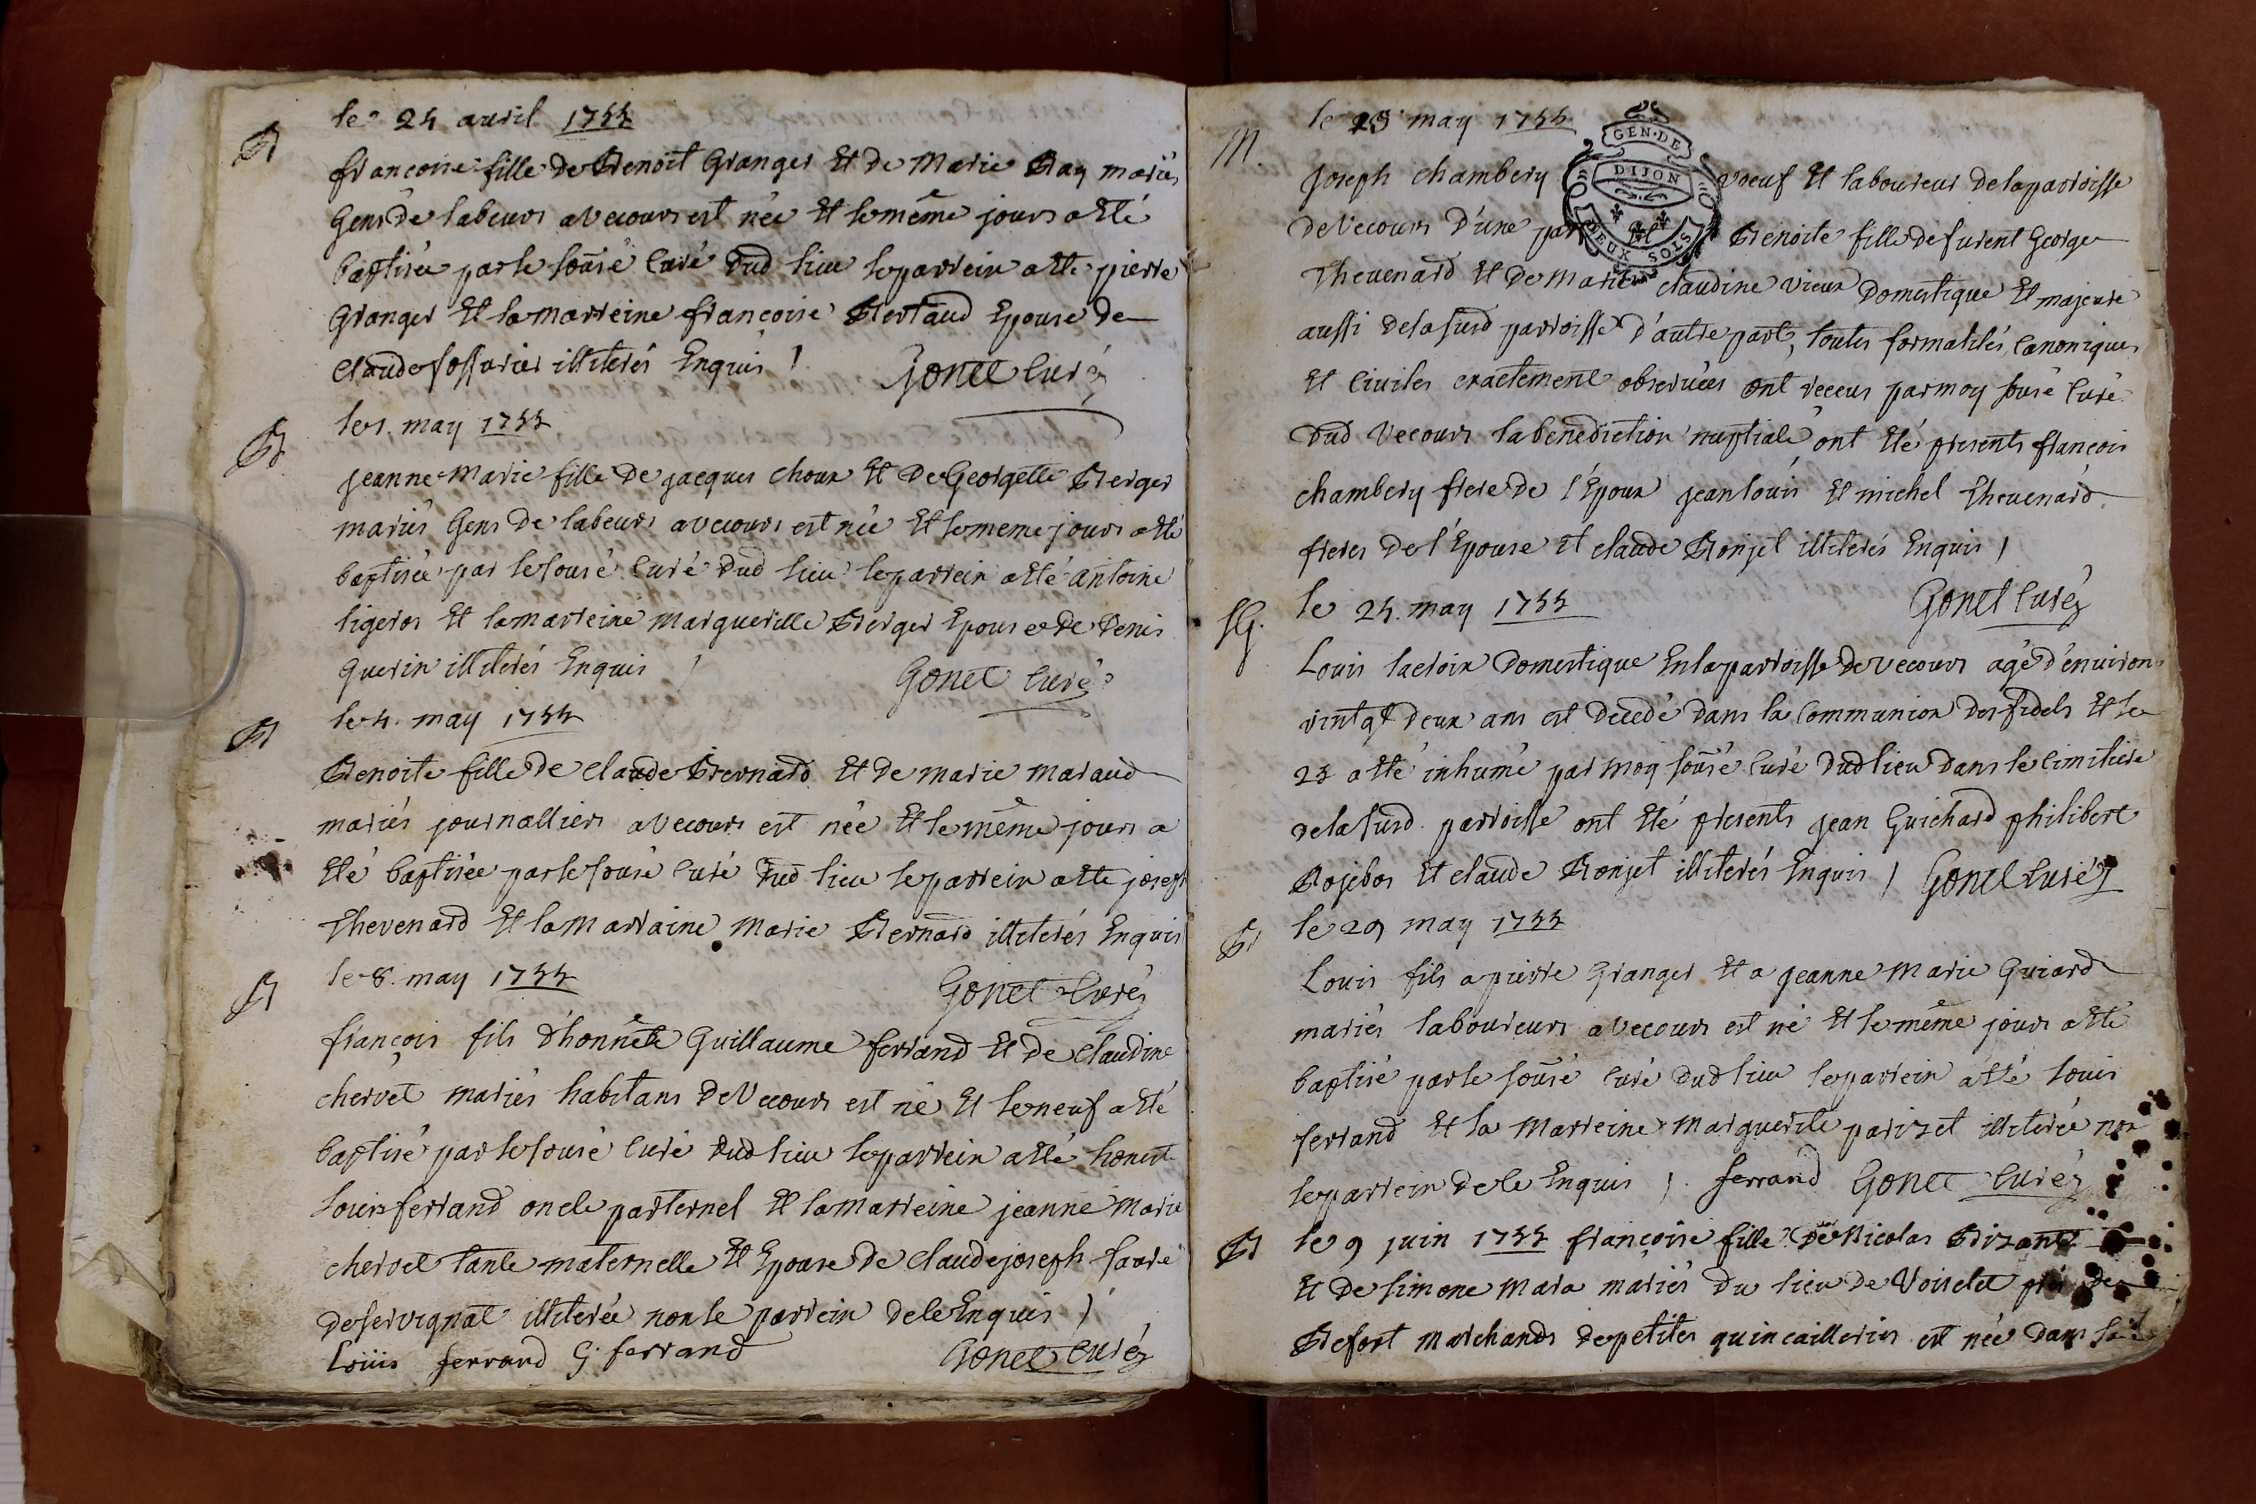 B
le 24 avril 1744
francoise fille de Benoit Granger Et de Marie Bay mariés
Gens de labeurs a Vecours est née Et le même jours a Eté
baptisée par le sousé Curé dud lieu le parrein a Eté pierre
Granger Et la marreine françoise Bertaud Epouse de
Claude fossurier illiterés Enquis /
Gonet Curé
B
le 1. may 1744
jeanne Marie fille de jacques choux Et de Georgette Berger
mariés Gens de labeurs a vecours est née Et le meme jours a Eté
baptisée par le sousé Curé dud lieu le parrein a Eté antoine
ligeros Et la marreine marguerille Berger Epouse de Denis
Guerin illiterés Enquis /
Gonet Curé
B
le 4. may 1744
Benoite fille de claude Bernard Et de marie maraud
mariés journalliers a Vecours est née Et le même jours a
Eté baptisée par le sousé Curé dud lieu le parrein a Eté joseph
Thevenard Et la Marraine Marie Bernard illiterés Enquis
B
le 8. may 1744
Gonet Curé
françois fils d'honnête Guillaume ferrand Et de claudine
chervet mariés habitans de Vecours est né Et le neuf a Eté
baptisé par le sousé Curé dud lieu le parrein a Eté honest
Louis ferrand oncle parternel Et la marreine jeanne Marie
chervet tante maternelle Et Epouse de claude joseph favre
de servignat illiterée non le parrein de le Enquis /
Loüis ferrand G. ferrand
Gonet Curé
M.
le 23 may 1744
GEN. DE
DIJON
DEUX SOLS
joseph chambery voeuf Et laboureur de la parroisse
de Vecours d'une part Et Benoite fille de furent George
Thevenard Et de Marie claudine vieux Domestique Et majeure
aussi de la susd parroisse d'autre part, toutes formalités Canoniques
Et Civiles exactement observées ont receus par moy sousé Curé
dud Vecours la benediction nuptiale ont Eté presents françois
chambery frere de l'Epoux jean louis Et michel Thevenard
freres de l'Epouse Et claude Bonjet illiterés Enquis /
SG.
le 24. may 1744
Gonet Curé
Louis lacroix Domestique En la parroisse de vecours agé d'environ
vintqt deux ans est decedé dans la Communion des fidels Et le
25 a Eté inhumé par moy sousé Curé dud lieu dans le Cimitiere
de la susd. parroisse ont Eté presents jean Guichard philibert
Bojebos Et claude Bonjet illiterés Enquis / Gonet Curé
B
le 29 may 1744
Louis fils a pierre Granger Et a jeanne Marie Guiard
mariés laboureurs a Vecours est né Et le même jours a Eté
baptisé par le sousé Curé dud lieu le parrein a Eté louis
ferrand Et la Marreine Marguerite parizet illiterée non
le parrein de le Enquis /. ferrand Gonet Curé
B
le 9 juin 1744 françoise fille de Nicolas
Et de simone Mara mariés du lieu de
Befort marchands de petites quincailleries est née dans